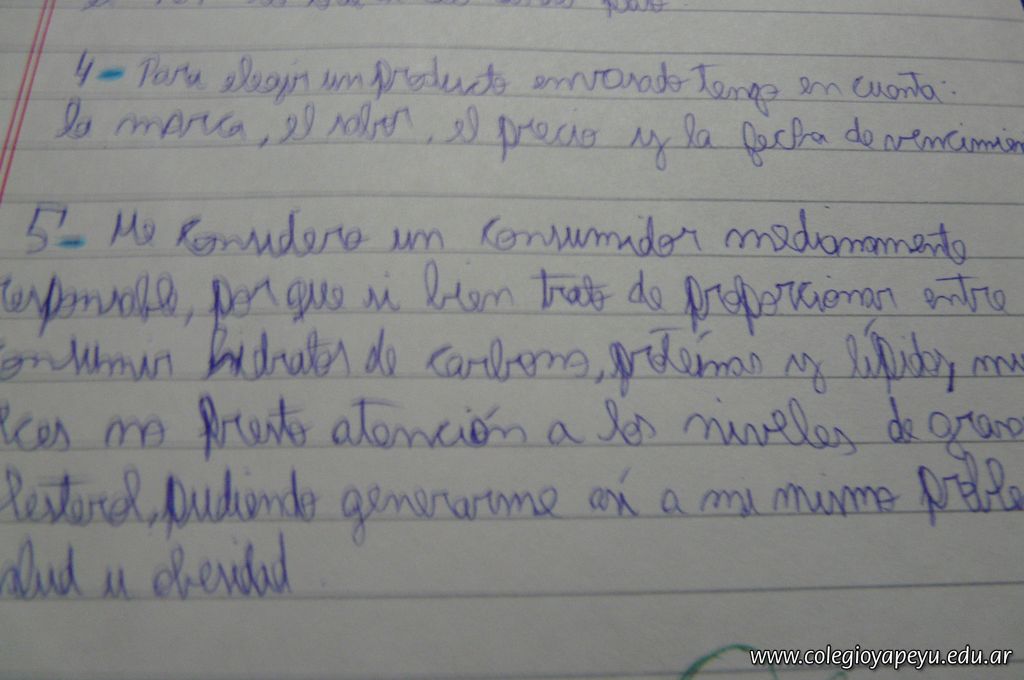 4- Para elegir un producto envasado tengo en cuenta:
la marca, el sabor, el precio y la fecha de vencimien
5- Me considero un consumidor medianamente
responsable, por que si bien trato de proporcionar entre
consumir hidratos de carbono, proteínas y lípidos, mu
ces no presto atención a los niveles de grasa
lesterol, pudiendo generarme así a mi mismo proble
salud u obesidad.
www.colegioyapeyu.edu.ar